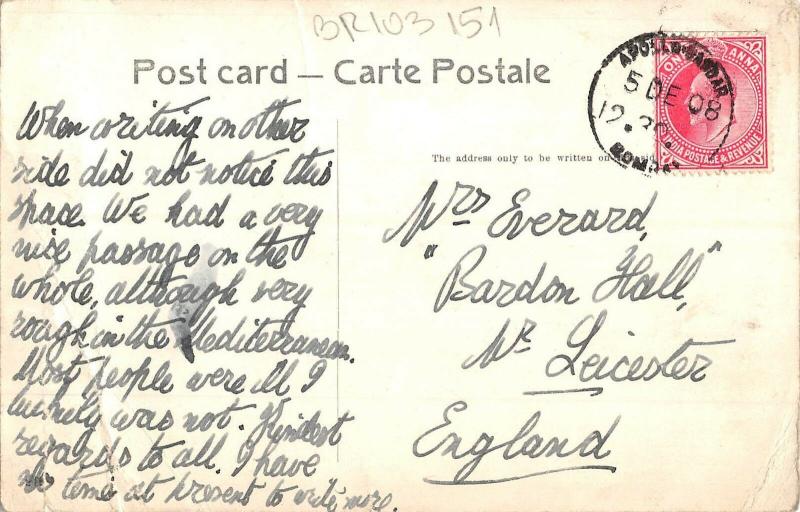 BR103 151
Post card — Carte Postale
APOLLO BANDAR
5 DE 08
12.30.
BOMBAY
ONE ANNA
INDIA POSTAGE & REVENUE
The address only to be written on
When writing on other
side did not notice this
space. We had a very
nice passage on the
whole, although very
rough in the Mediterranean.
Most people were ill I
luckily was not. Kindest
regards to all. I have
no time at present to write more.
Mrs Everard,
"Bardon Hall,"
Nr Leicester
England